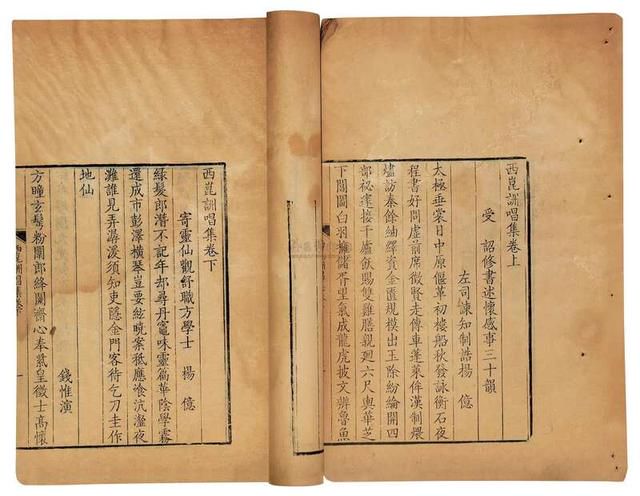 西崑詶唱集卷上
受 詔修書述懷感事三十韻
左司諫知制誥揚 億
太極垂裳日中原偃革初樓船秋發詠衡石夜
程書好問虛前席徵賢走傳車蓬萊侔漢制煨
燼訪秦餘紬繹資金匱規模出玉除紛綸開四
部祕邃接千廬飫賜雙雞膳親廻六尺輿華芝
下閶闔白羽擁儲胥望氣成龍虎披文辨魯魚
西崑詶唱集卷下
寄靈仙觀舒職方學士 楊 億
綠髮郎潛不記年却尋丹竈味靈篇華陰學霧
還成市彭澤橫琴豈要絃曉案秪應飡沆瀣夜
灘誰見弄潺湲須知吏隱金門客待乞刀圭作
地仙
錢惟演
方瞳玄鬢粉闈郎絳闕齋心奉紫皇徵士高懷
西崑詶唱集卷下
一